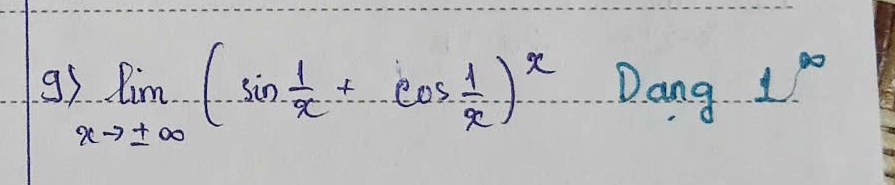 g) lim (sin 1/x + cos 1/x)^x Dạng 1^∞
x → ± ∞